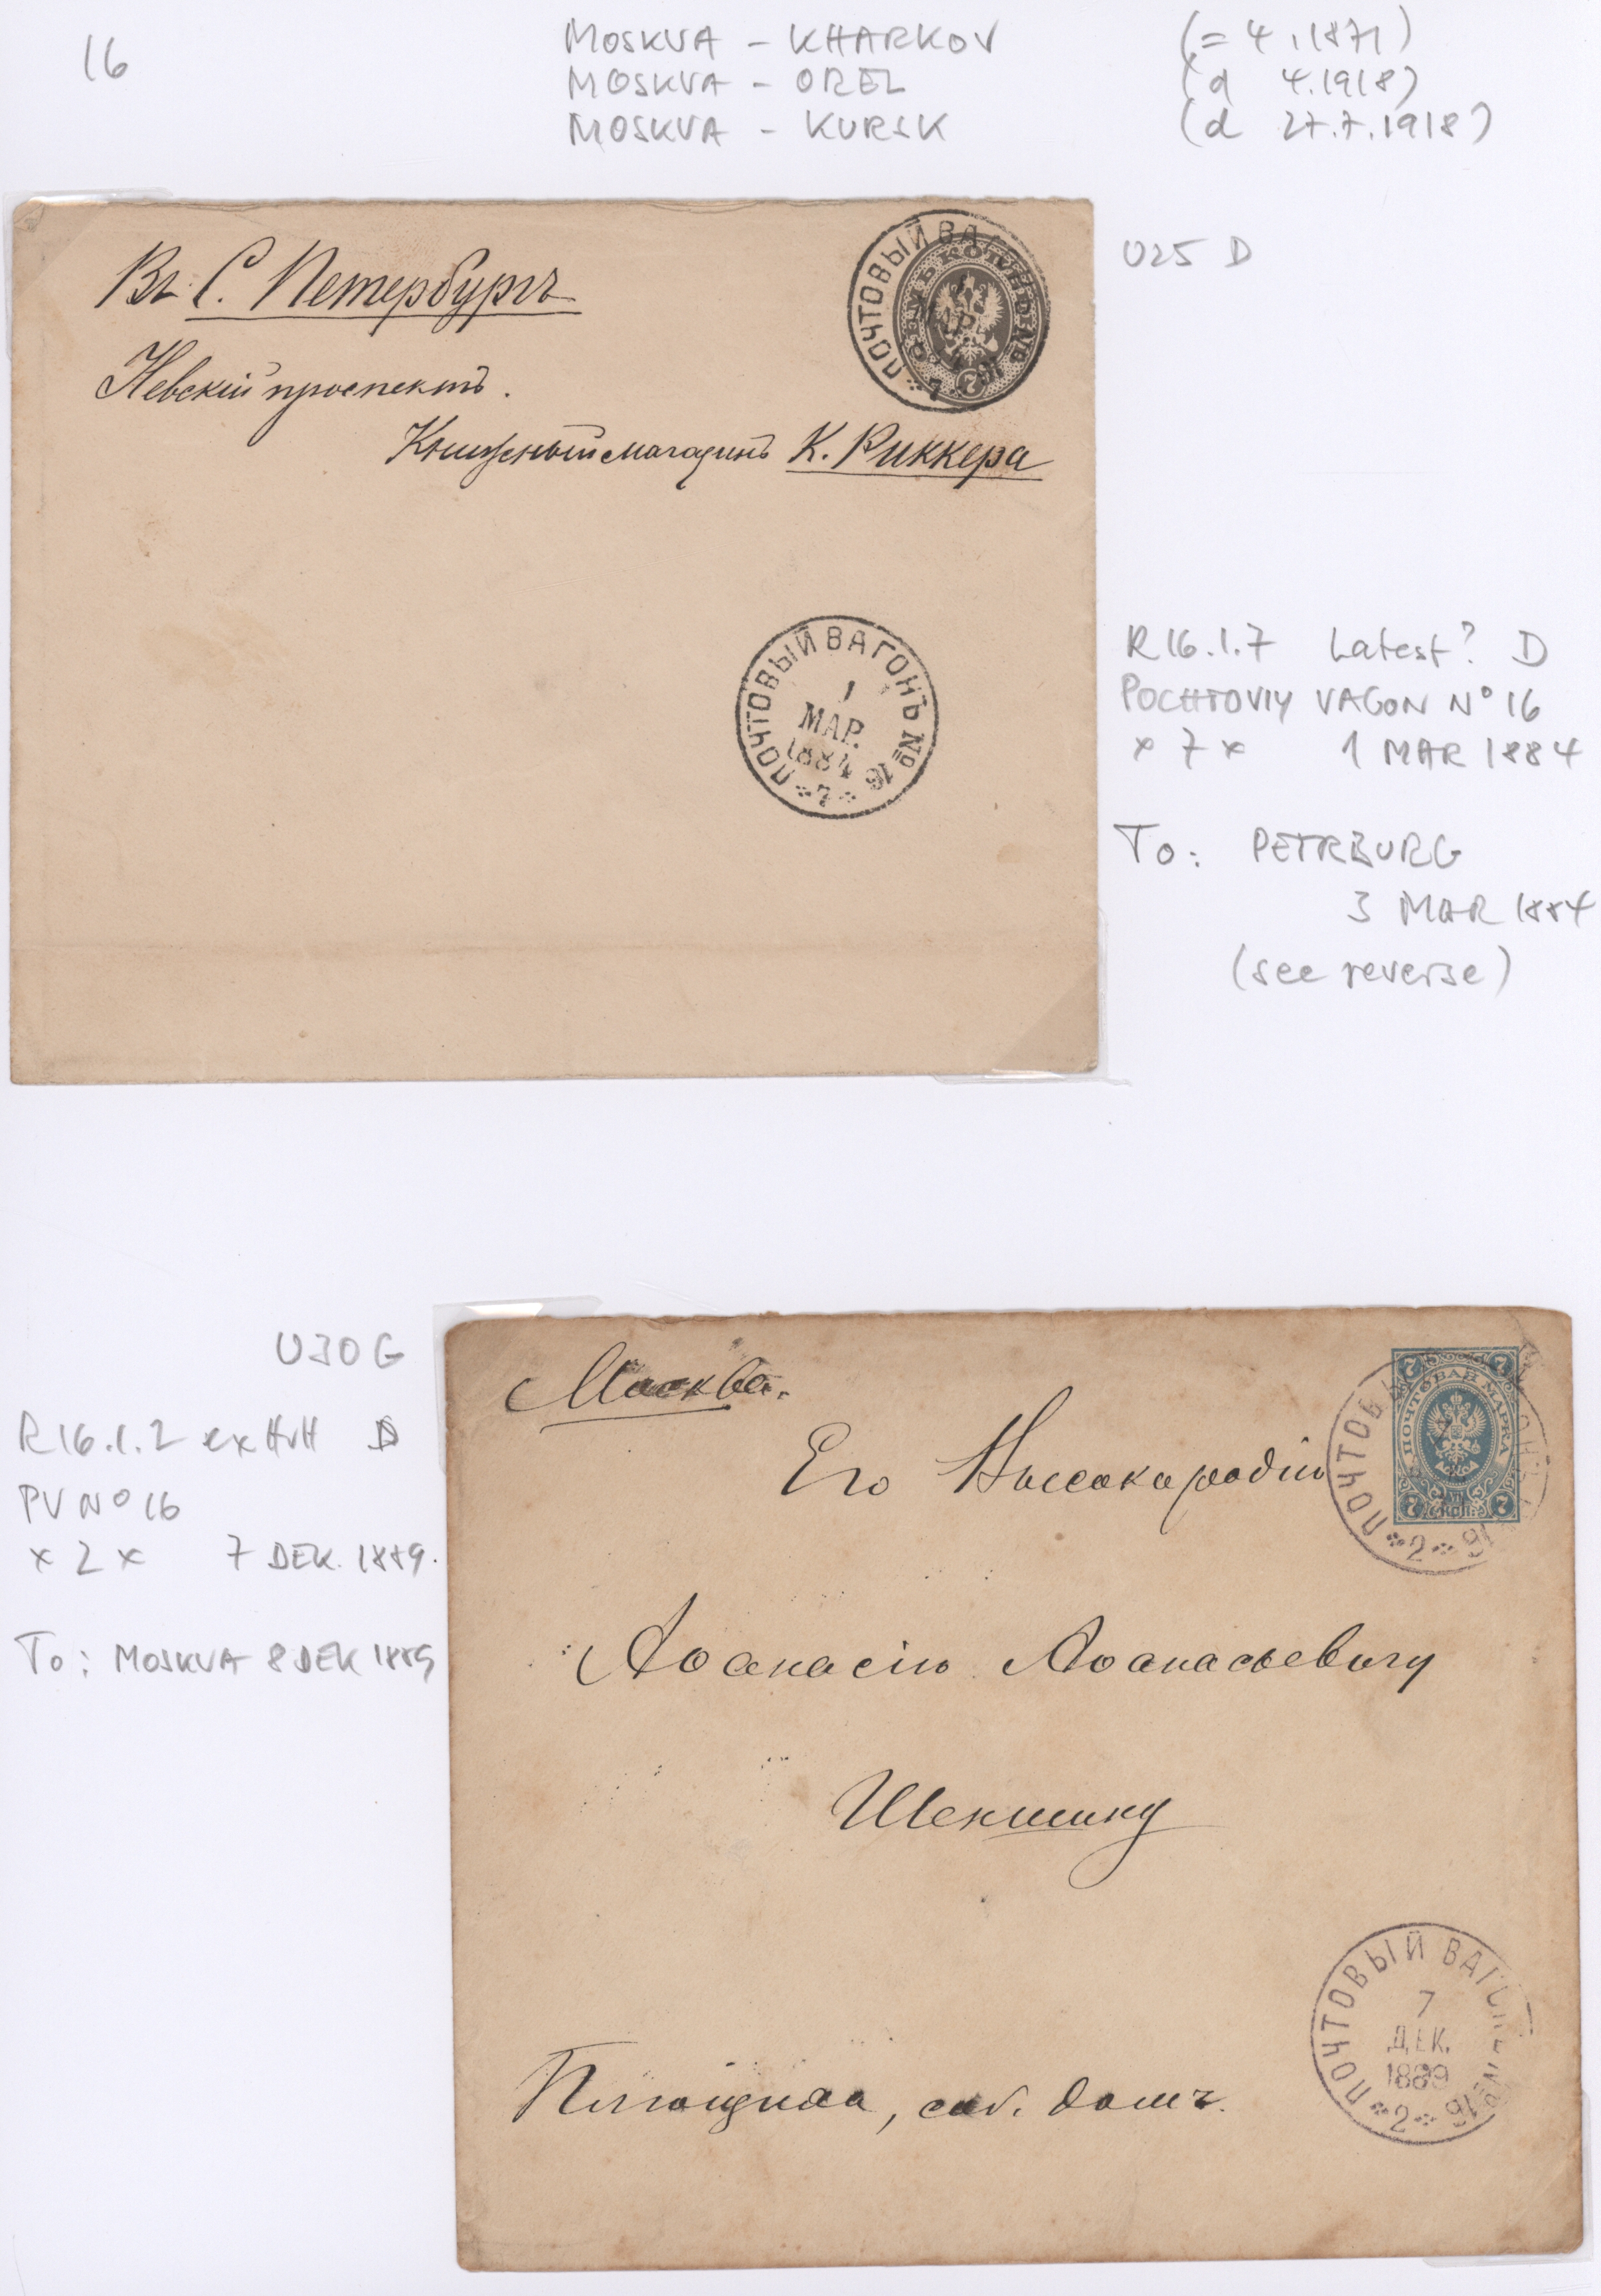 16
MOSKVA - KHARKOV (= 4.1871)
MOSKVA - OREL (d 4.1918)
MOSKVA - KURSK (d 27.7.1918)
U25 D
Въ С. Петербургъ
Невскій проспектъ.
Книжный магазинъ К. Риккера
ПОЧТОВЫЙ ВАГ
МАР.
7
7
ПОЧТОВЫЙ ВАГОНЪ № 16
1
МАР.
1884
7
R16.1.7 Latest? D
POCHTOVIY VAGON Nº 16
x 7 x 1 MAR 1884
To: PETRBURG
3 MAR 1884
(see reverse)
U30G
R16.1.2 ex HvH D
PV Nº 16
x 2 x 7 DEK. 1889.
To: MOSKVA 8 DEK 1889
Москва.
Его Высокородію
Аѳанасію Аѳанасьевичу
Шеншину
Плющиха, соб. домъ.
ПОЧТОВЫ 16
2
ПОЧТОВАЯ МАРКА
7 7
7 КОП. 7
ПОЧТОВЫЙ ВАГОНЪ № 16
7
ДЕК.
1889
2